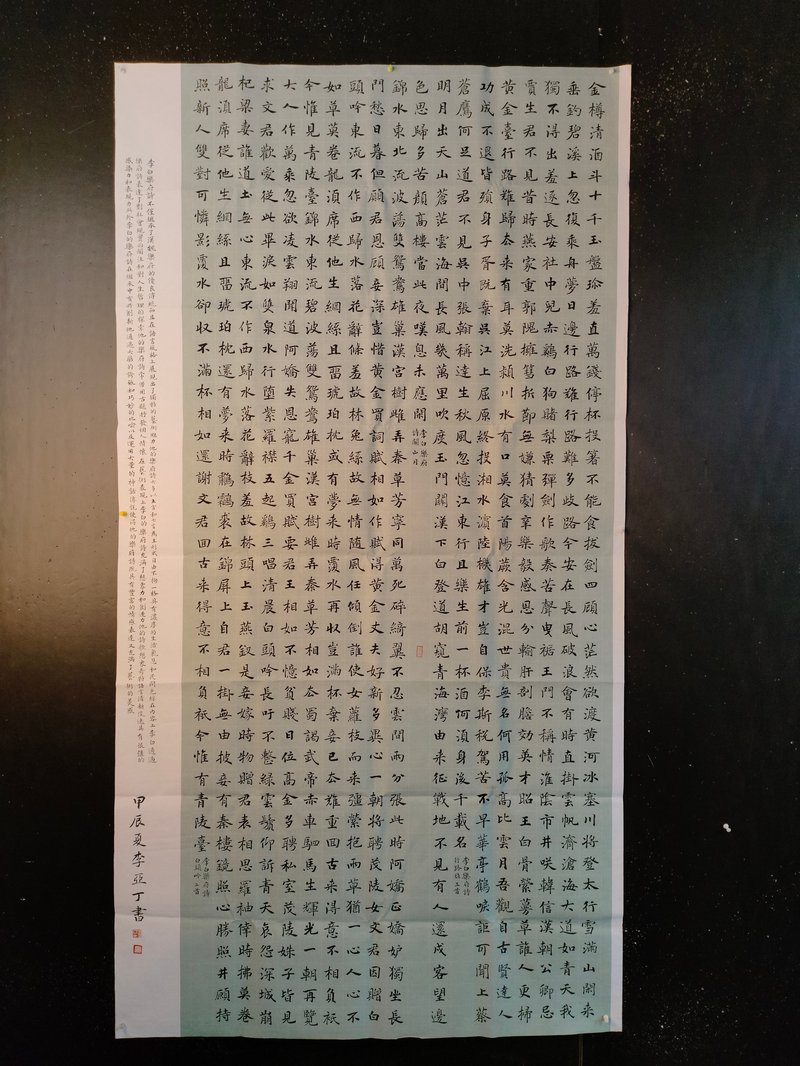 金樽清酒斗十千玉盤珍羞直萬錢停杯投箸不能食拔劍四顧心茫然欲渡黃河冰塞川將登太行雪滿山閒来
垂釣碧溪上忽復乘舟夢日邊行路難行路難多歧路今安在長風破浪會有時直掛雲帆濟滄海大道如青天我
獨不得出羞逐長安社中兒赤鷄白狗賭梨栗彈劍作歌奏苦聲曳裾王門不稱情淮陰市井咲韓信漢朝公卿忌
賈生君不見昔時燕家重郭隗擁篲折節無嫌猜劇辛樂毅感恩分輸肝剖膽効英才昭王白骨縈蔓草誰人更掃
黃金臺行路難歸去来有耳莫洗潁川水有口莫食首陽蕨含光混世貴無名何用孤高比雲月吾觀自古賢達人
功成不退皆殞身子胥既棄吳江上屈原終投湘水濱陸機雄才豈自保李斯稅駕苦不早華亭鶴唳詎可聞上蔡
蒼鷹何足道君不見吳中張翰稱達生秋風忽憶江東行且樂生前一杯酒何須身後千載名
李白樂府詩
行路難三首
明月出天山蒼茫雲海間長風幾萬里吹度玉門關漢下白登道胡窺青海灣由来征戰地不見有人還戍客望邊
色思歸多苦顏高樓當此夜嘆息未應閑
李白樂府
詩關山月
錦水東北流波蕩雙鴛鴦雄巢漢宮樹雌弄秦草芳寧同萬死碎綺翼不忍雲間兩分張此時阿嬌正嬌妒獨坐長
門愁日暮但願君恩顧妾深豈惜黃金買詞賦相如作賦得黃金丈夫好新多異心一朝將聘茂陵女文君因贈白
頭吟東流不作西歸水落花辭條羞故林兔絲故無情隨風任傾倒誰使女蘿枝而来强縈抱兩草猶一心人心不
如草莫卷龍須席從他生網絲且留琥珀枕或有夢来時覆水再收豈滿杯棄妾已去難重回古来得意不相負祇
今惟見青陵臺錦水東流碧波蕩雙鴛鴦雄巢漢宮樹雌弄秦草芳相如去蜀謁武帝赤車駟馬生輝光一朝再覽
大人作萬乘忽欲凌雲翔聞道阿嬌失恩寵千金買賦要君王相如不憶貧賤日位高金多聘私室茂陵姝子皆見
求文君歡愛從此畢淚如雙泉水行墮紫羅襟五起鷄三唱清晨白頭吟長吁不整綠雲鬢仰訴青天哀怨深城崩
杞梁妻誰道土無心東流不作西歸水落花辭枝羞故林頭上玉燕釵是妾嫁時物贈君表相思羅袖倖時拂莫卷
龍須席從他生網絲且留琥珀枕還有夢来時鷫鸘裘在錦屏上自君一掛無由披妾有秦樓鏡照心勝照井願持
照新人雙對可憐影覆水卻収不滿杯相如還謝文君回古来得意不相負祇今惟有青陵臺
李白樂府詩
白頭吟二首
李白樂府詩不僅繼承了漢魏樂府的優良傳統而且在語言風格上展現出了獨特的藝術魅力
甲辰夏李亞丁書